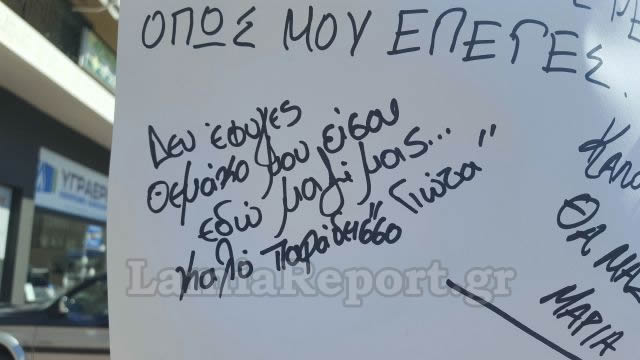 ΟΠΩΣ ΜΟΥ ΕΛΕΓΕΣ.
Δεν έφυγες
Θεμάκο μου είσαι
εδώ μαζί μας...
Καλό Παράδεισο
"Γιώτα"
ΘΑ
ΜΑΡΙΑ
ΥΓΡΑΕΡ
LamiaReport.gr